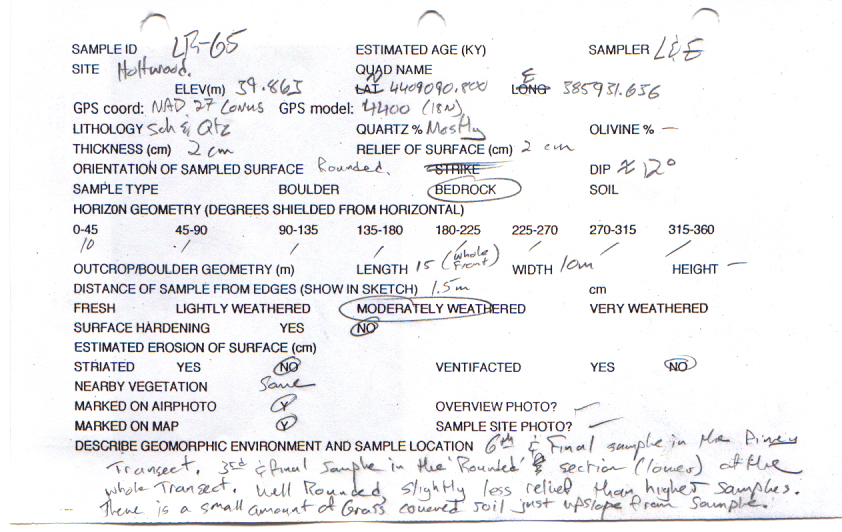 SAMPLE ID LR-65 ESTIMATED AGE (KY) SAMPLER L&E
SITE Holtwood. QUAD NAME
ELEV(m) 39.863 LAT N 4409090.800 LONG E 385931.636
GPS coord: NAD 27 Conus GPS model: 4400 (18N)
LITHOLOGY Sch & Qtz QUARTZ % Mostly OLIVINE % —
THICKNESS (cm) 2 cm RELIEF OF SURFACE (cm) 2 cm
ORIENTATION OF SAMPLED SURFACE Rounded. STRIKE DIP ≈ 12°
SAMPLE TYPE BOULDER BEDROCK SOIL
HORIZON GEOMETRY (DEGREES SHIELDED FROM HORIZONTAL)
0-45 45-90 90-135 135-180 180-225 225-270 270-315 315-360
10 / / / / / / /
OUTCROP/BOULDER GEOMETRY (m) LENGTH 15 (whole front) WIDTH 10m HEIGHT —
DISTANCE OF SAMPLE FROM EDGES (SHOW IN SKETCH) 1.5m cm
FRESH LIGHTLY WEATHERED MODERATELY WEATHERED VERY WEATHERED
SURFACE HARDENING YES NO
ESTIMATED EROSION OF SURFACE (cm)
STRIATED YES NO VENTIFACTED YES NO
NEARBY VEGETATION Same
MARKED ON AIRPHOTO Y OVERVIEW PHOTO? ✓
MARKED ON MAP Y SAMPLE SITE PHOTO? ✓
DESCRIBE GEOMORPHIC ENVIRONMENT AND SAMPLE LOCATION 6th & Final sample in the Piney
Transect. 3rd & final sample in the 'Rounded' section (lower) of the
whole Transect. Well Rounded, slightly less relief than higher samples.
There is a small amount of Grass covered soil just upslope from sample.